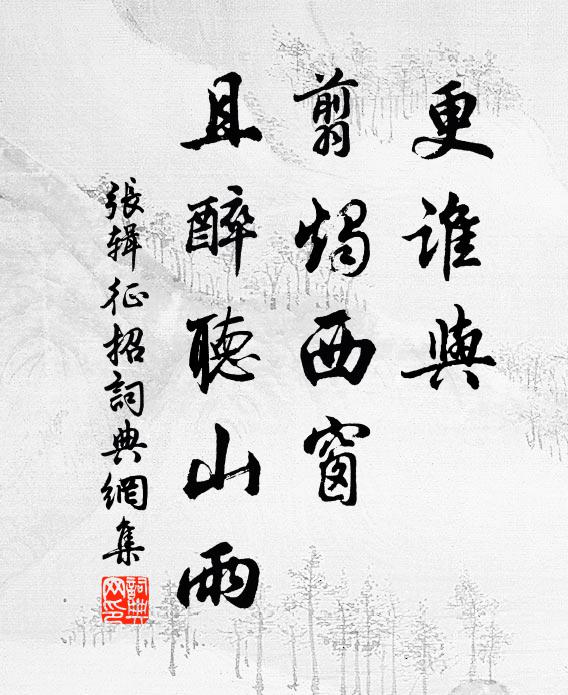 更誰與
翦燭西窗
且醉聽山雨
張辑征招詞典網集
詞典
网印